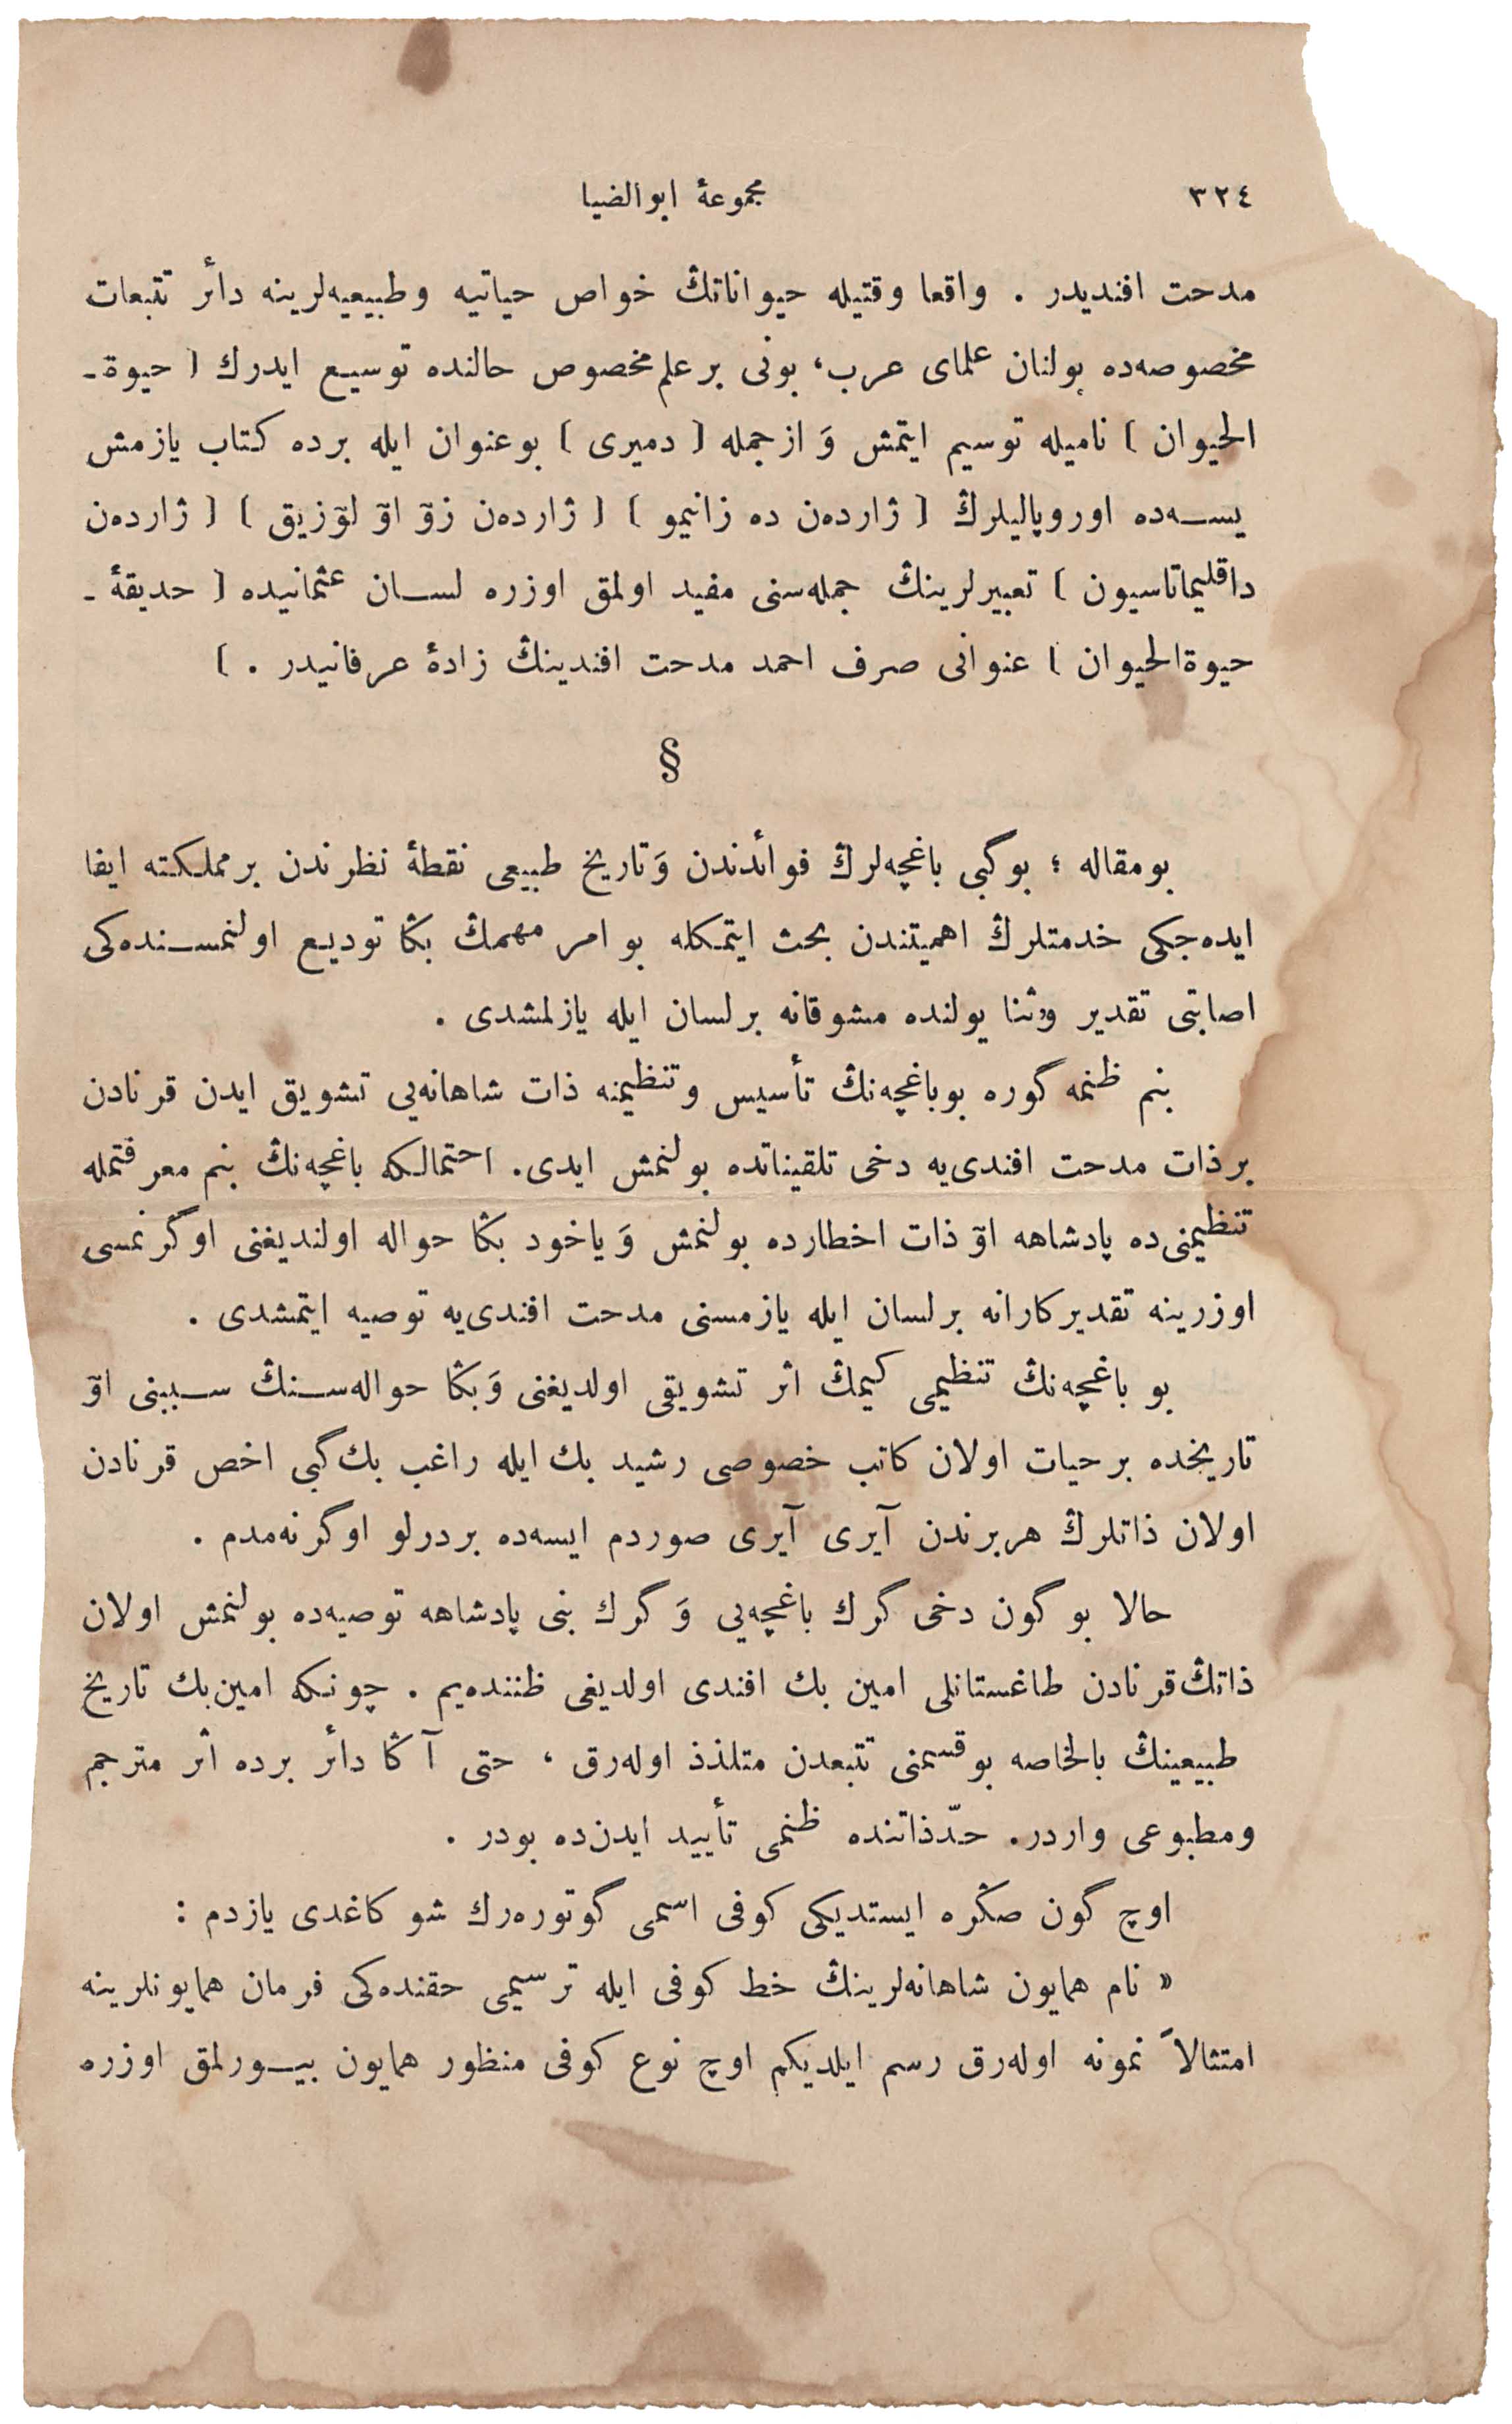 ٣٢٤
مجموعهٔ ابوالضیا
مدحت افندیدر . واقعا وقتیله حیواناتڭ خواص حیاتیه وطبیعیه‌لرینه دأر تتبعات
مخصوصه‌ده بولنان علمای عرب، بونی بر علم مخصوص حالنده توسیع ایدرك [ حیوة-
الحیوان ] نامیله توسیم ایتمش وَ ازجمله [ دمیری ] بو عنوان ایله برده کتاب یازمش
یسه‌ده اوروپالیلرڭ [ ژارده‌ن ده زانیمو ] [ ژارده‌ن زوٓ اوٓ لوٓژیق ] [ ژارده‌ن
داقلیماتاسیون ] تعبیرلرینڭ جمله‌سنی مفید اولمق اوزره لسان عثمانیده [ حدیقهٔ -
حیوةالحیوان ] عنوانی صرف احمد مدحت افندینڭ زادهٔ عرفانیدر . ]
§
بومقاله ؛ بوگبی باغچه‌لرڭ فوائدندن وَتاریخ طبیعی نقطهٔ نظرندن برمملکته ایفا
ایده‌جکی خدمتلرڭ اهمیتندن بحث ایتمکله بو امر مهمڭ بڭا تودیع اولنمسنده‌کی
اصابتی تقدیر وثنا یولنده مشوقانه برلسان ایله یازلمشدی .
بنم ظنمه گوره بوباغچه‌نڭ تأسیس وتنظیمنه ذات شاهانه‌یی تشویق ایدن قرنادن
برذات مدحت افندی‌یه دخی تلقیناتده بولنمش ایدی. احتمالکه باغچه‌نڭ بنم معرفتمله
تنظیمنی‌ده پادشاهه اوٓ ذات اخطارده بولنمش وَیاخود بڭا حواله اولندیغنی اوگرنمسی
اوزرینه تقدیرکارانه برلسان ایله یازمسنی مدحت افندی‌یه توصیه ایتمشدی .
بو باغچه‌نڭ تنظیمی کیمڭ اثر تشویقی اولدیغنی وَبڭا حواله‌سنڭ سببنی اوٓ
تاریخده برحیات اولان کاتب خصوصی رشید بك ایله راغب بك گبی اخص قرنادن
اولان ذاتلرڭ هربرندن آیری آیری صوردم ایسه‌ده بردرلو اوگرنه‌مدم .
حالا بو گون دخی گرك باغچه‌یی وَ گرك بنی پادشاهه توصیه‌ده بولنمش اولان
ذاتڭ قرنادن طاغستانلی امین بك افندی اولدیغی ظننده‌یم . چونکه امین‌بك تاریخ
طبیعینڭ بالخاصه بو قسمنی تتبعدن متلذذ اوله‌رق ، حتی آڭا دأر برده اثر مترجم
ومطبوعی واردر. حدّذاتنده ظنمی تأیید ایدن‌ده بودر .
اوچ گون صڭره ایستدیکی کوفی اسمی گوتوره‌رك شو کاغدی یازدم :
« نام همایون شاهانه‌لرینڭ خط کوفی ایله ترسیمی حقنده‌کی فرمان همایونلرینه
امتثالاً نمونه اوله‌رق رسم ایلدیکم اوچ نوع کوفی منظور همایون بیورلمق اوزره